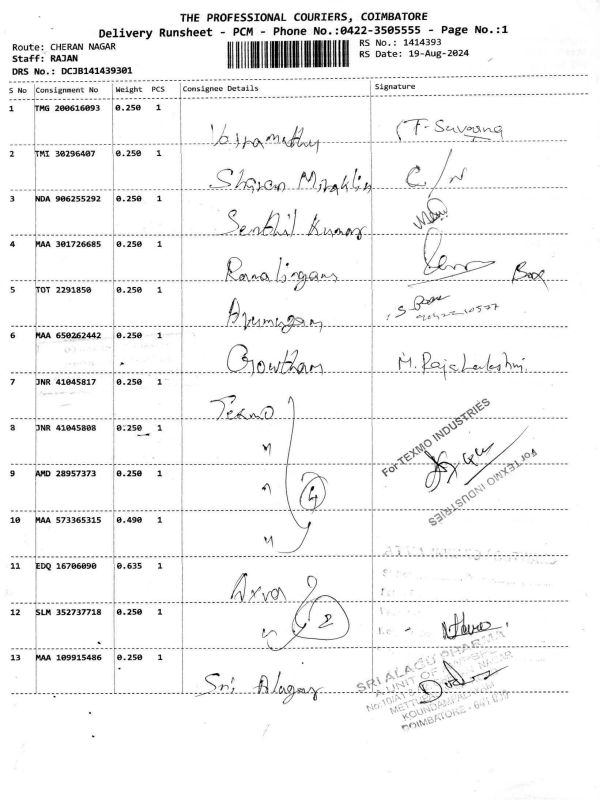 THE PROFESSIONAL COURIERS, COIMBATORE
Delivery Runsheet - PCM - Phone No.:0422-3505555 - Page No.:1
Route: CHERAN NAGAR
RS No.: 1414393
Staff: RAJAN
RS Date: 19-Aug-2024
DRS No.: DCJB141439301
S No Consignment No Weight PCS Consignee Details Signature
1 TMG 200616093 0.250 1
2 TMI 30296407 0.250 1 Sharon C/N
3 NDA 906255292 0.250 1 Senthil Kumar
4 MAA 301726685 0.250 1 Ramalingam Box
5 TOT 2291850 0.250 1 Arumugam
6 MAA 650262442 0.250 1 Gowtham M. Rajalakshmi
7 JNR 41045817 0.250 1 Texmo
8 JNR 41045808 0.250 1 "
For TEXMO INDUSTRIES
For TEXMO INDUSTRIES
9 AMD 28957373 0.250 1 " 4
10 MAA 573365315 0.490 1 "
11 EDQ 16706090 0.635 1
12 SLM 352737718 0.250 1 " 2
13 MAA 109915486 0.250 1 Sri Alagar
SRI ALAGU PHARMA
KOUNDAMPALAYAM
COIMBATORE -